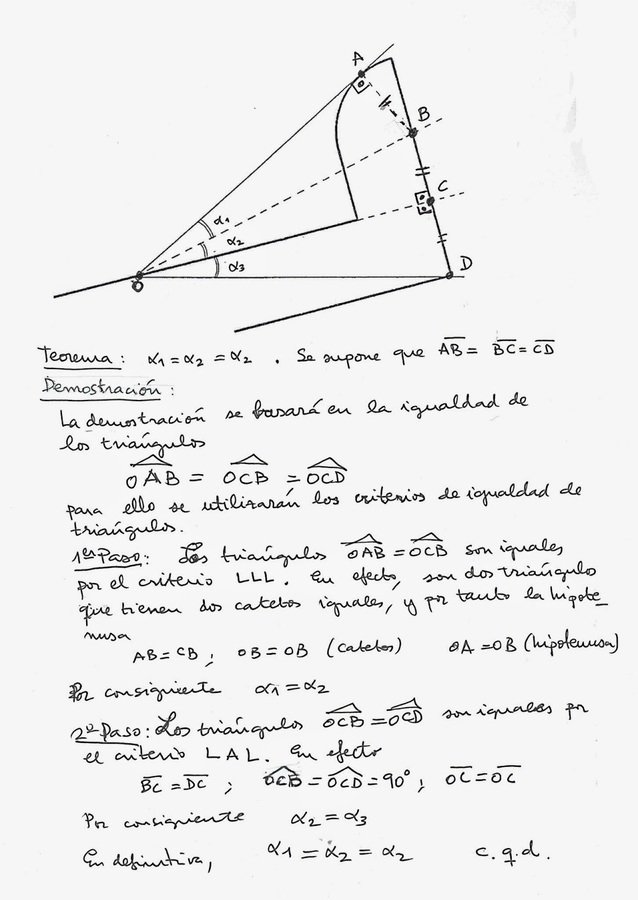 A
B
C
α1
α2
α3
O
D
Teorema: α1 = α2 = α2 . Se supone que AB = BC = CD
Demostración:
La demostración se basará en la igualdad de
los triángulos
OAB = OCB = OCD
para ello se utilizarán los criterios de igualdad de
triángulos.
1er Paso: Los triángulos OAB = OCB son iguales
por el criterio LLL. En efecto, son dos triángulo
que tienen dos catetos iguales, y por tanto la hipote_
nusa
AB = CB ; OB = OB (catetos) OA = OB (hipotenusa)
Por consiguiente α1 = α2
2º Paso: Los triángulos OCB = OCD son iguales por
el criterio LAL. En efecto
BC = DC ; OCB = OCD = 90° ; OC = OC
Por consiguiente α2 = α3
En definitiva, α1 = α2 = α2 c.q.d.